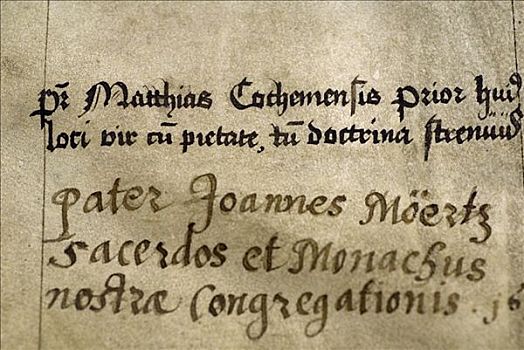 pr̄ Matthias Cochemensis prior huiꝰ
loci vir cū pietate, tū doctrina strenuuꝰ
Pater Joannes Möertz
Sacerdos et Monachus
nostræ Congregationis. 16